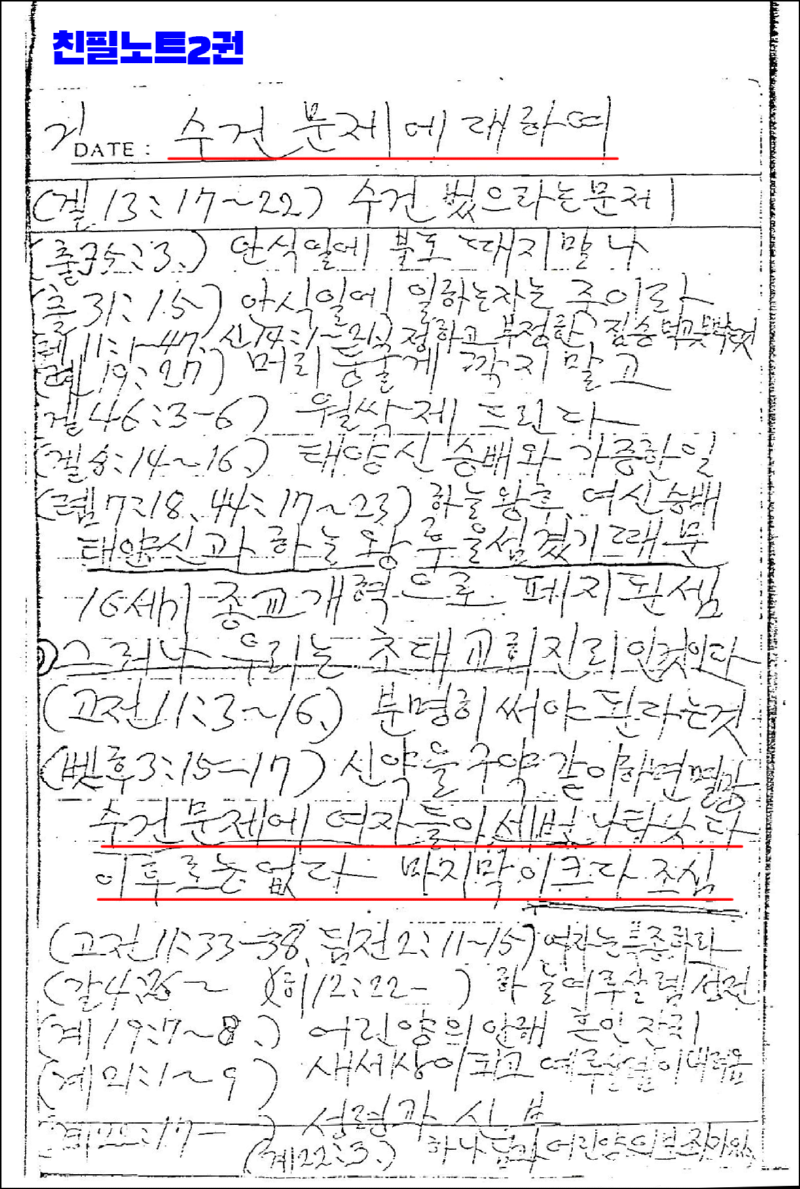 친필노트2권
수건 문제에 대하여
DATE :
(겔 13:17~22) 수건 벘으라는문제
(출35:3.) 안식일에 불도 때지말나
(출31:15) 안식일에 일하는자는 죽이라
(레11:1~47, 신14:1~21) 정하고 부정한 짐승
(렙19:27) 머리 둥굴게 깍지말고
겔46:3-6) 월싹제 드린다
(겔8:14~16.) 태양신 숭배와 가증한일
(렘7:18, 44:17~23) 하늘왕후, 여신숭배
태양신과 하늘왕후을섬겼기때문
16세기 종교개혁으로 폐지된셈
그러나 우리는 초대교회진리인것이다
(고전11:3~16,) 분명히 써야된라는것
(벳후3:15~17) 신약을 구약같이하면멸망
수건문제에 여자들이세번나타낫다
이후로는없다 마지막이크다 조심
(고전11:33-38, 딤전2:11~15) 여자는복종하라
(갈4:26~ )(히12:22- ) 하늘예루살렘성전
(계19:7~8.) 어린양의안해 혼인잔치
(계21:1~9 ) 새세상이되고 예루살렘이내려옴
(계22:17- ) 성령과 신부
(계22:3.) 하나님과어린양의보좌가있